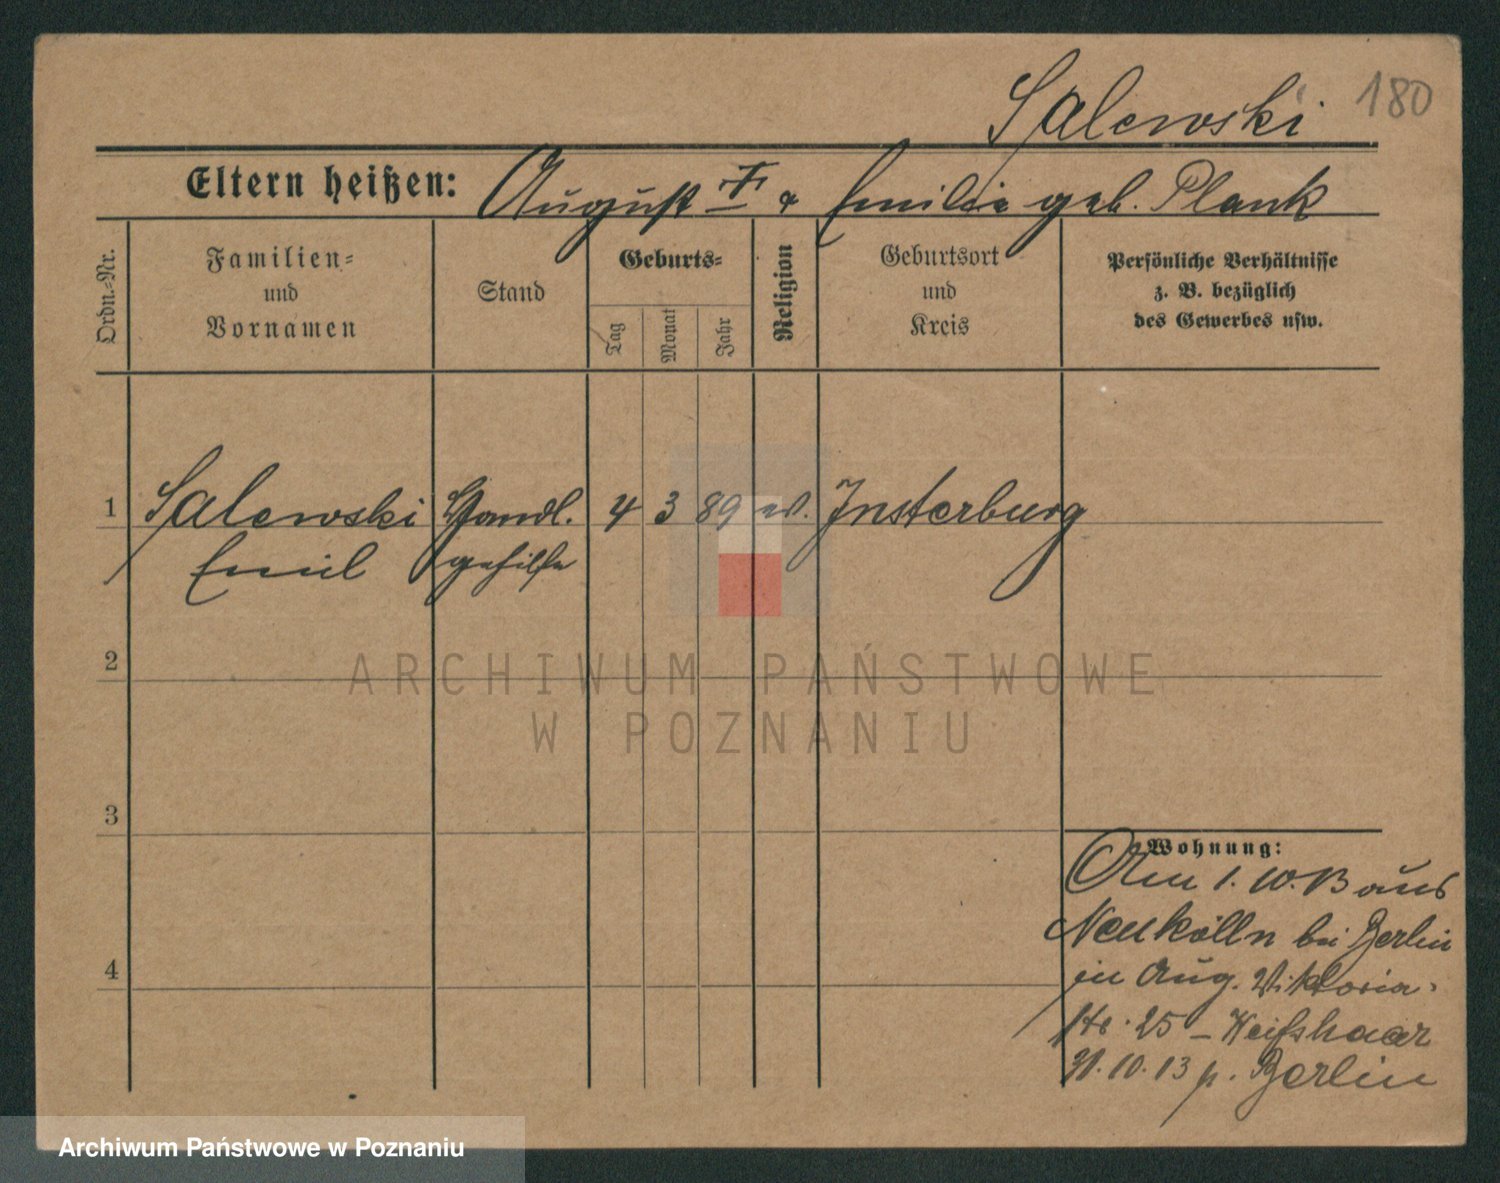 180
Salewski
Eltern heißen: August † & Emilie geb. Plank
Ordn.=Nr.
Familien= und Vornamen
Stand
Geburts=
Tag
Monat
Jahr
Religion
Geburtsort und Kreis
Persönliche Verhältnisse
z. B. bezüglich
des Gewerbes usw.
1 Salewski Handl. 4 3 89 ev. Insterburg
Emil gehilfe
2
ARCHIWUM PAŃSTWOWE
W POZNANIU
3
Wohnung:
Am 1.10.13 aus
Neukölln bei Berlin
in Aug. Viktoria-
str. 25 – Weißhaar
31.10.13 p. Berlin
4
Archiwum Państwowe w Poznaniu